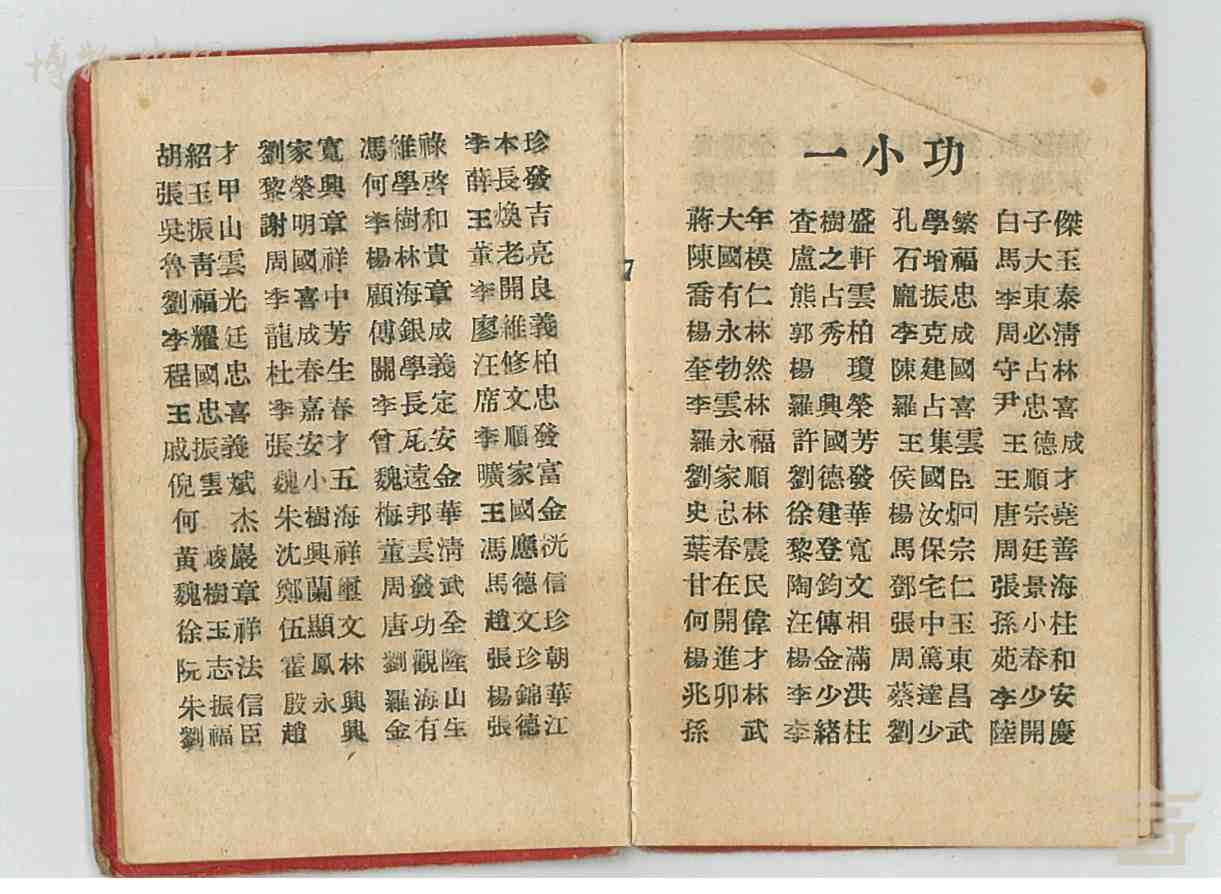 胡紹才 劉家寬 馮維祿 李本珍
張玉甲 黎榮興 何學啓 薛長發
吳振山 謝明章 李樹和 王煥吉
魯靑雲 周國祥 楊林貴 董老亮
劉福光 李喜中 顧海章 李開良
李耀廷 龍成芳 傅銀成 廖維義
程國忠 杜春生 關學義 汪修柏
王忠喜 李嘉春 李長定 席文忠
戚振義 張安才 曾瓦安 李順發
倪雲斌 魏小五 魏遠金 曠家富
何杰 朱樹海 梅邦華 王國金
黃峻巖 沈興祥 董雲淸 馮應洸
魏樹章 鄭蘭璽 周發武 馬德信
徐玉祥 伍顯文 唐功全 趙文珍
阮志法 霍鳳林 劉觀隆 張珍朝
朱振信 殷永興 羅海山 楊錦華
劉福臣 趙興 金有生 張德江
7
一小功
蔣大年 查樹盛 孔學繁 白子傑
陳國模 盧之軒 石增福 馬大玉
喬有仁 熊占雲 龐振忠 李東泰
楊永林 郭秀柏 李克成 周必淸
奎勃然 楊瓊 陳建國 守占林
李雲林 羅興榮 羅占喜 尹忠喜
羅永福 許國芳 王集雲 王德成
劉家順 劉德發 侯國臣 王順才
史忠林 徐建華 楊汝炯 唐宗堯
葉春震 黎登寬 馬保宗 周廷善
甘在民 陶鈞文 鄧宅仁 張景海
何開偉 汪傳相 張中玉 孫小柱
楊進才 楊金滿 周篤東 苑春和
兆卯林 李少洪 蔡達昌 李少安
孫武 李緒柱 劉少武 陸開慶